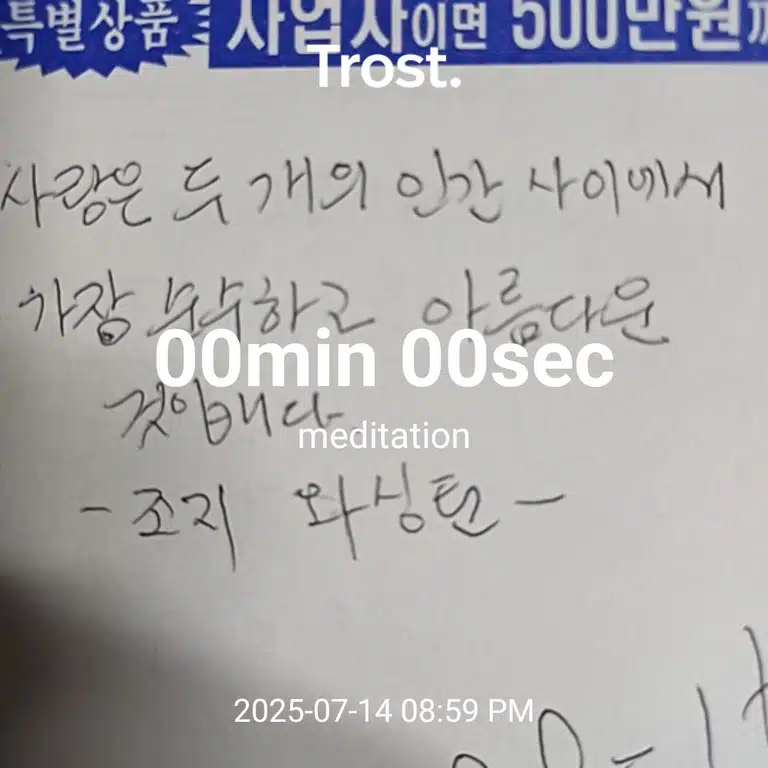 특별상품 사업자이면 500만원까
Trost.
사랑은 두 개의 인간 사이에서
가장 순수하고 아름다운
00min 00sec
것입니다.
meditation
- 조지 와싱턴 -
2025-07-14 08:59 PM